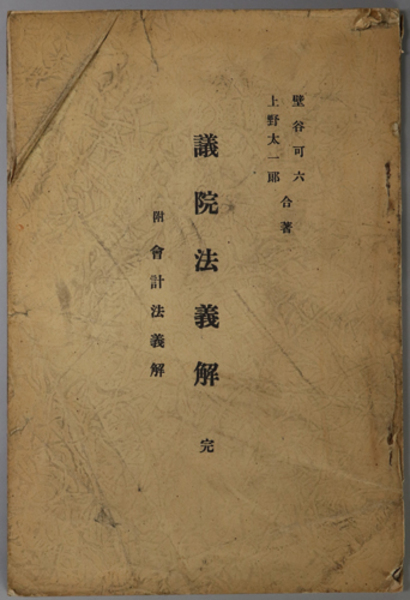 壁谷可六
上野太一郎
合著
議院法義解 完
附 會計法義解